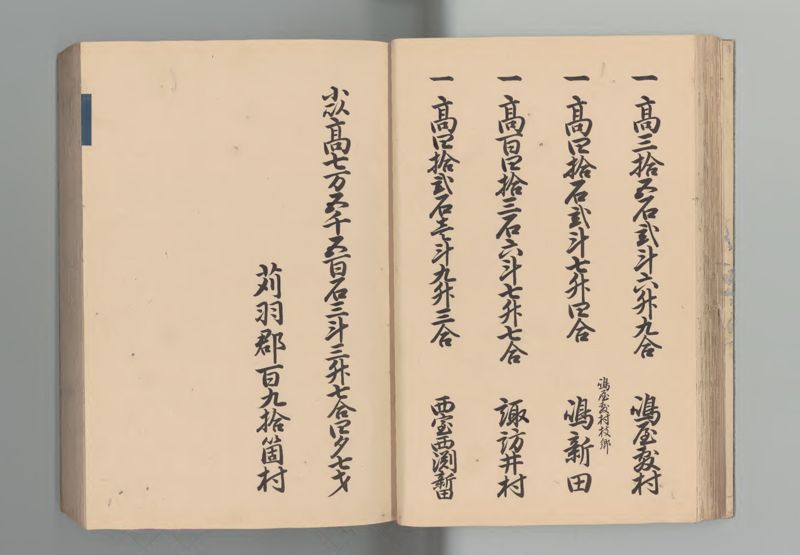 一 高三拾五石弐斗六升九合 嶋屋敷村
一 高四拾石弐斗七升四合 嶋屋敷村枝郷 嶋新田
一 高百四拾三石六斗七升七合 諏訪井村
一 高四拾弐石壱斗九升三合 西宝西渕新田
小以高七万五千五百石三斗三升七合四夕七才
苅羽郡百九拾箇村